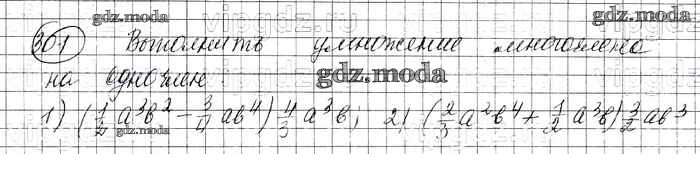 gdz.moda vipgdz.ru gdz.moda
301 Выполнить умножение многочлена
на одночлен:
gdz.moda
1) (1/2 a³b² - 3/4 ab⁴) 4/3 a³b; 2) (2/3 a²b⁴ + 1/2 a³b) 3/2 ab³
gdz.moda